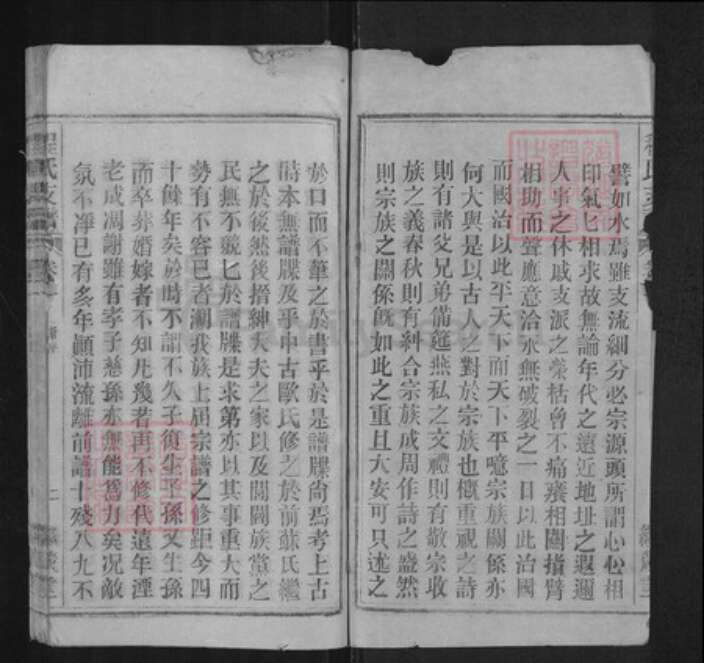 譬如水焉雖支流細分必宗源頭所謂心心相
印氣匕相求故無論年代之遠近地址之遐邇
人事之休戚支派之榮枯曾不痛癢相關指臂
相助而聲應意洽永無破裂之一日以此治國
而國治以此平天下而天下平噫宗族關係亦
何大與是以古人之對於宗族也概重視之詩
則有諸父兄弟備筵燕私之文禮則有敬宗收
族之義春秋則有糾合宗族成周作詩之盛然
則宗族之關係旣如此之重且大安可只述之
於口而不筆之於書乎於是譜牒尚焉考上古
時本無譜牒及乎中古歐氏修之於前蘇氏繼
之於後然後搢紳大夫之家以及閥閱族黨之
民無不兢匕於譜牒是求第亦以其事重大而
勢有不容已者溯我族上屆宗譜之修距今四
十餘年矣於時不謂不久子復生子孫又生孫
而卒葬婚嫁者不知凡幾若再不修代遠年湮
老成凋謝雖有孝子慈孫亦無能爲力矣况敵
氛不淨已有多年顚沛流離前譜十殘八九不
程氏支譜